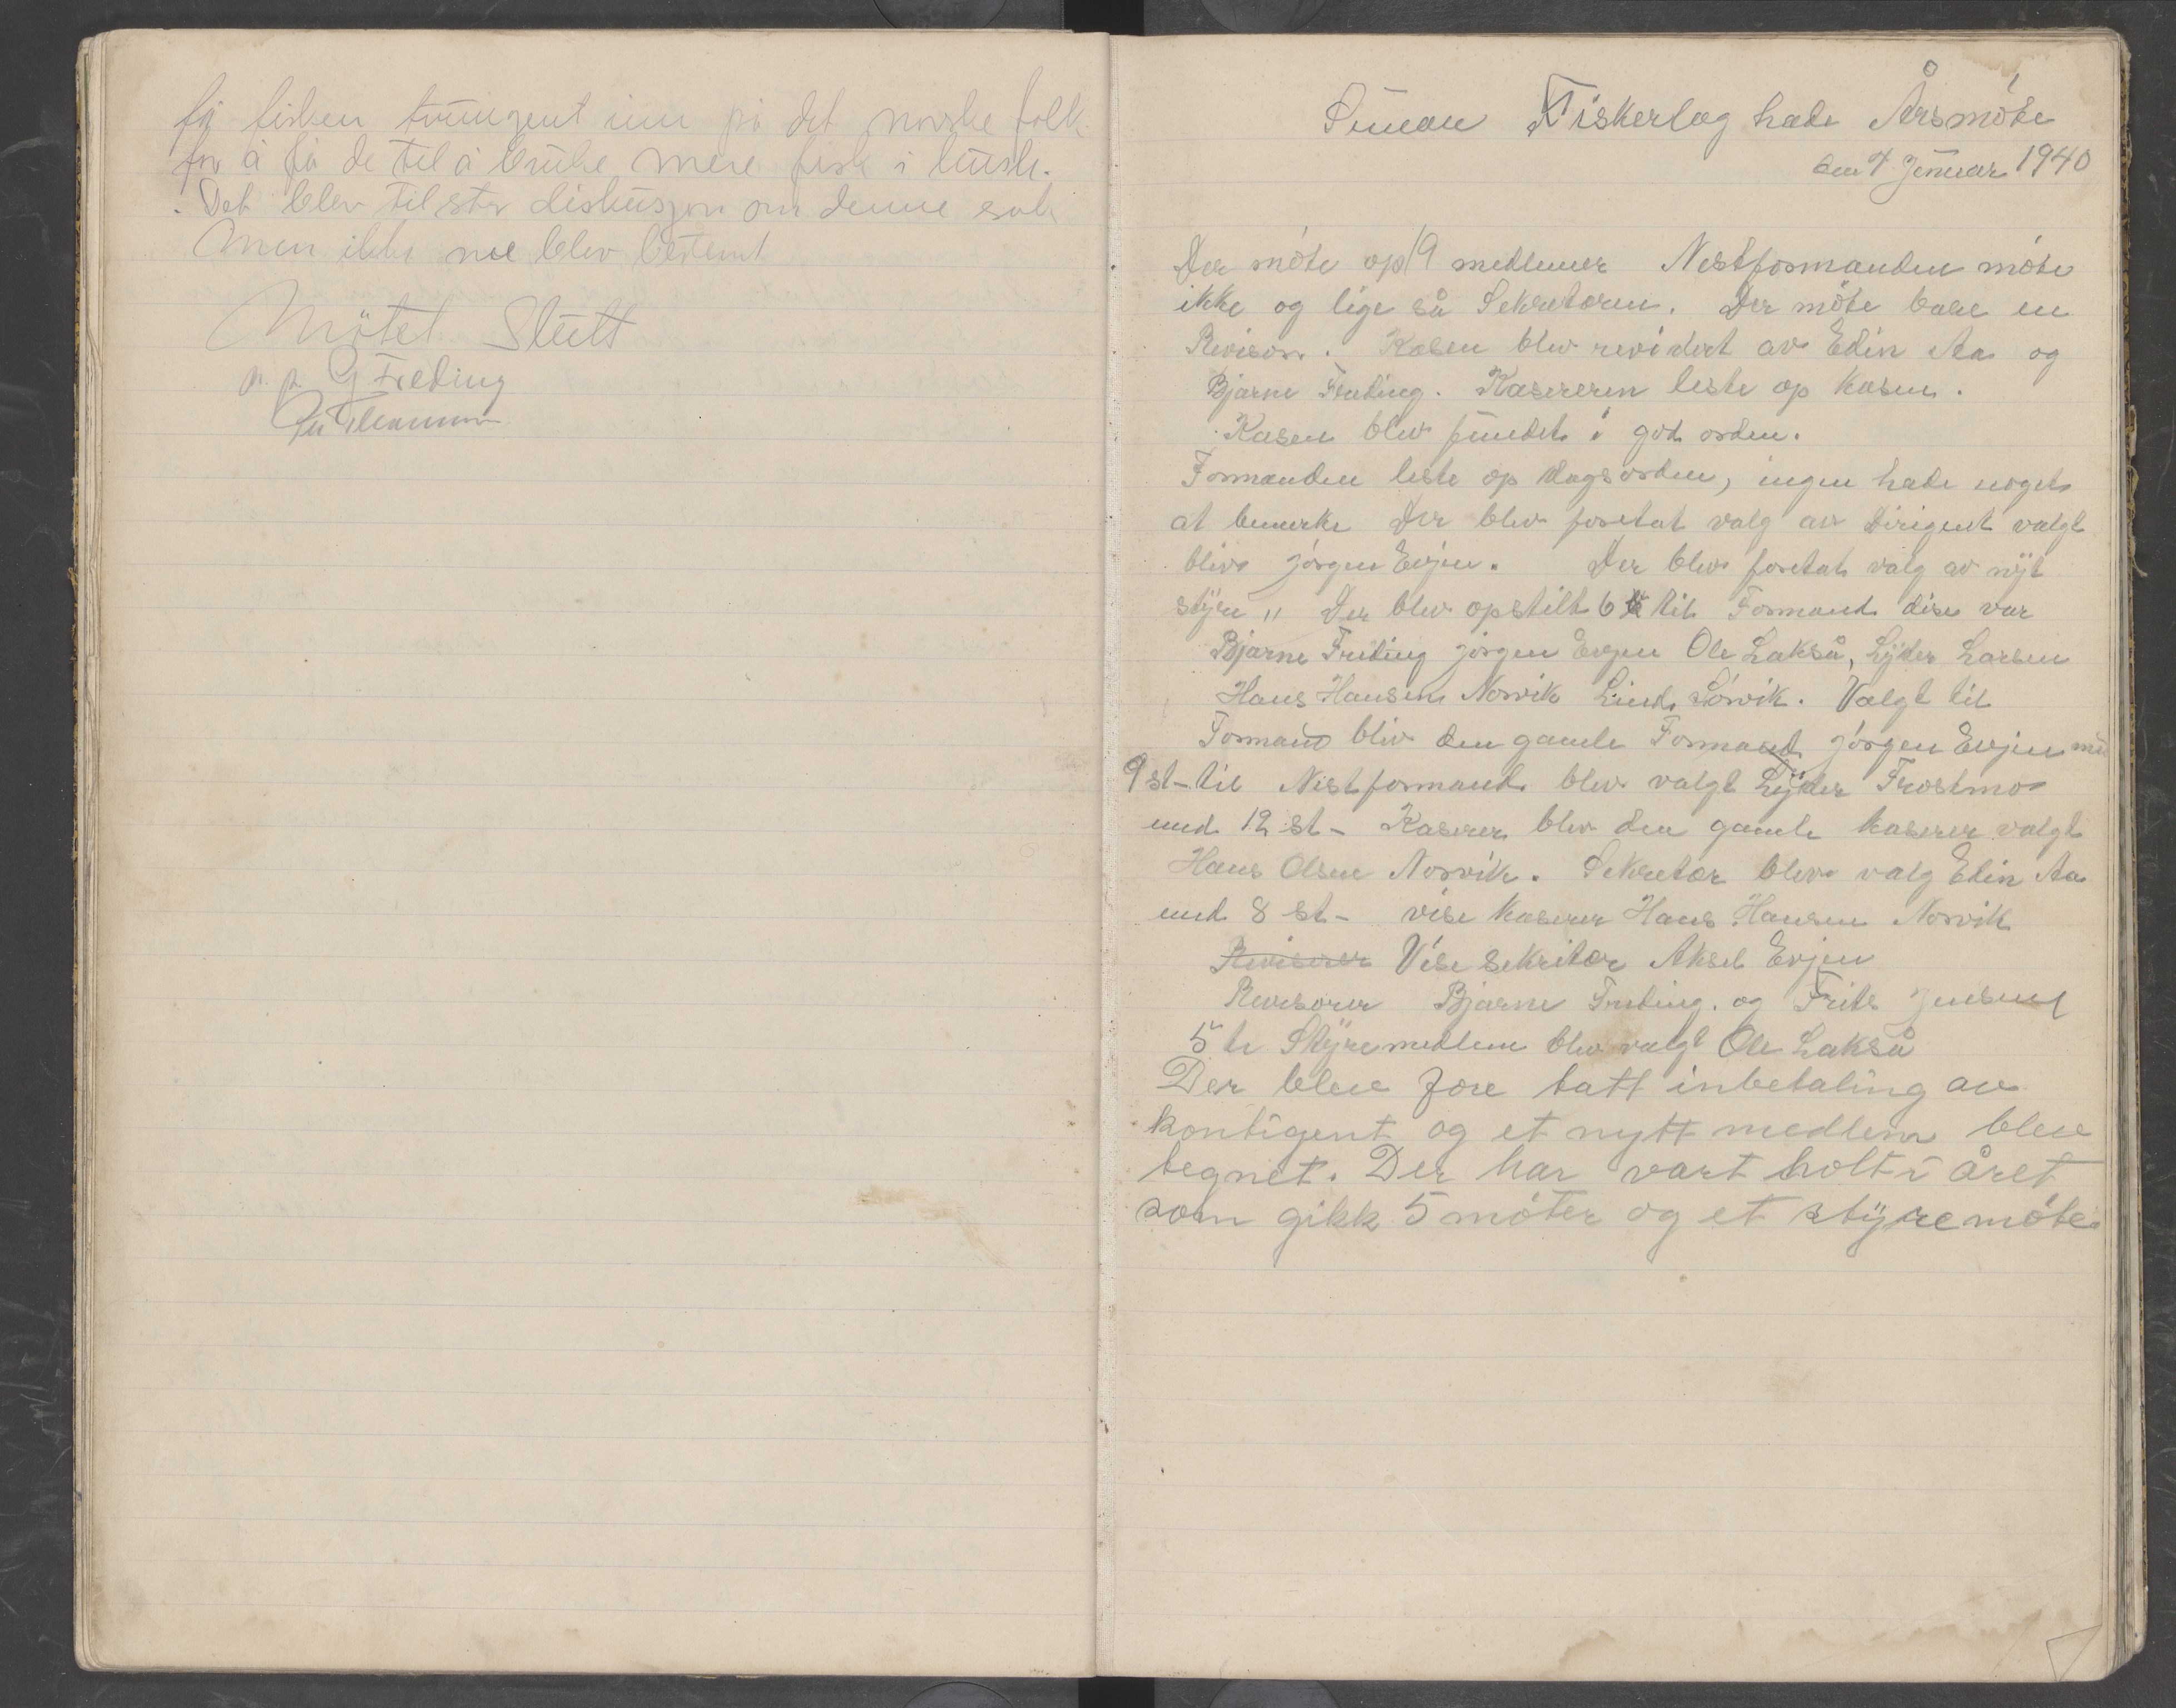 få fisken tvungent inn på det norske folk
for å få de til å bruke mere fisk i
Det blev til stor diskusjon om denne sak
Men ikke noe blev bestemt
Møtet Slutt
p. p. G Freding
Fiskerlag hade Årsmöte
den 7 Januar 1940
Der möte op 19 medlemer Nestformanden möte
ikke og lige så Sekretæren. Der möte bare en
Revisor. Kasen blev revidert av Edin Aa og
Bjarne Freding. Kasereren leste op kasen.
Kasen blev fundet i god orden.
Formanden leste op dagsorden, ingen hade noget
at bemerke Der blev foretat valg av Dirigent valgt
blev Jörgen Evjen. Der blev foretat valg av nyt
styre " Der blev opstilt 6 til Formand dise var
Bjarne Freding Jörgen Evjen Ole Lakså, Lyder Larsen
Hans Hansen Norvik Sörvik. Valgt til
Formand blev den gamle Formand Jörgen Evjen med
9 st- til Nestformand blev valgt Lyder Frostmo
med 12 st- Kaserer blev den gamle kaserer valgt
Hans Olsen Norvik. Sekretær blev valg Edin Aa
med 8 st- vise kaserer Hans Hansen Norvik
Reviserer Vise sekritær Aksel Evjen
Revisorer Bjarne Freding. og Frits Jensen
5te Styremedlem blev valgt Ole Lakså
Der bleve fore tatt inbetaling av
kontigent og et nytt medlem bleve
tegnet. Der har vært holt i året
som gikk 5 möter og et styremöte